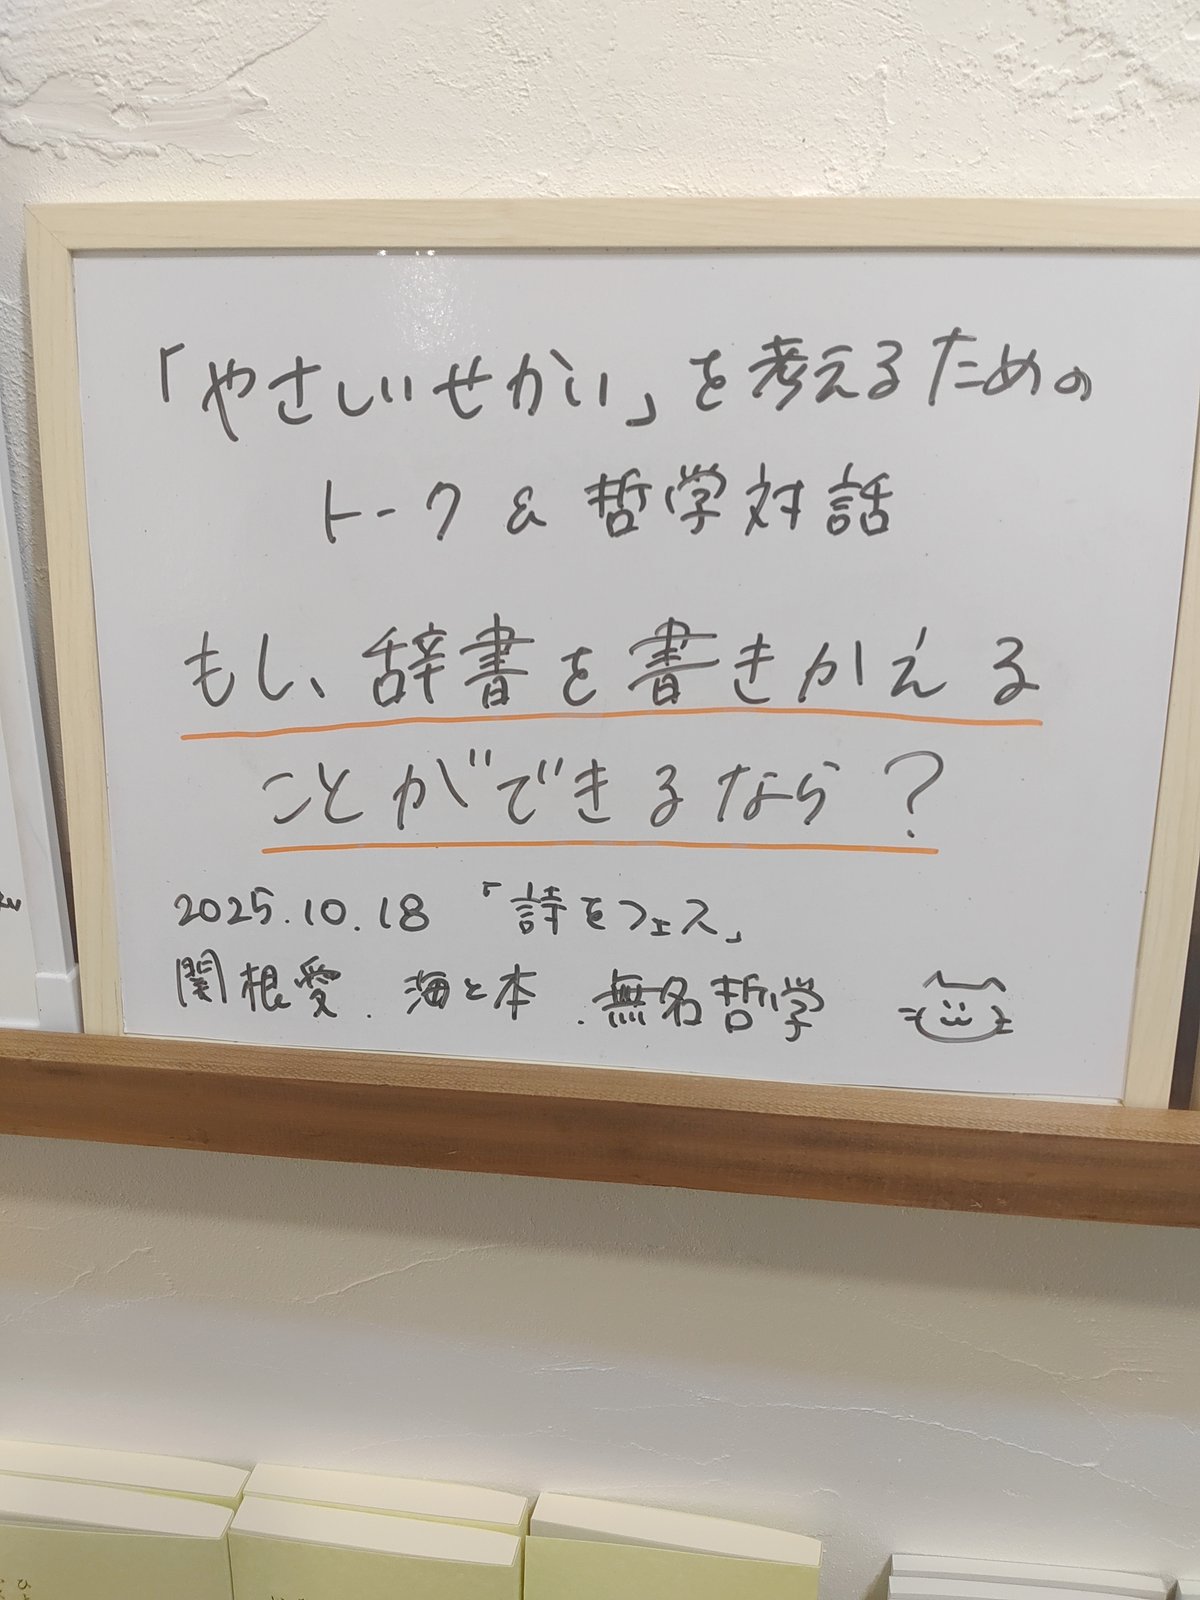 「やさしいせかい」を考えるための
トーク & 哲学対話
もし、辞書を書きかえる
ことができるなら？
2025.10.18 「詩をフェス」
関根愛. 海と本. 無名哲学